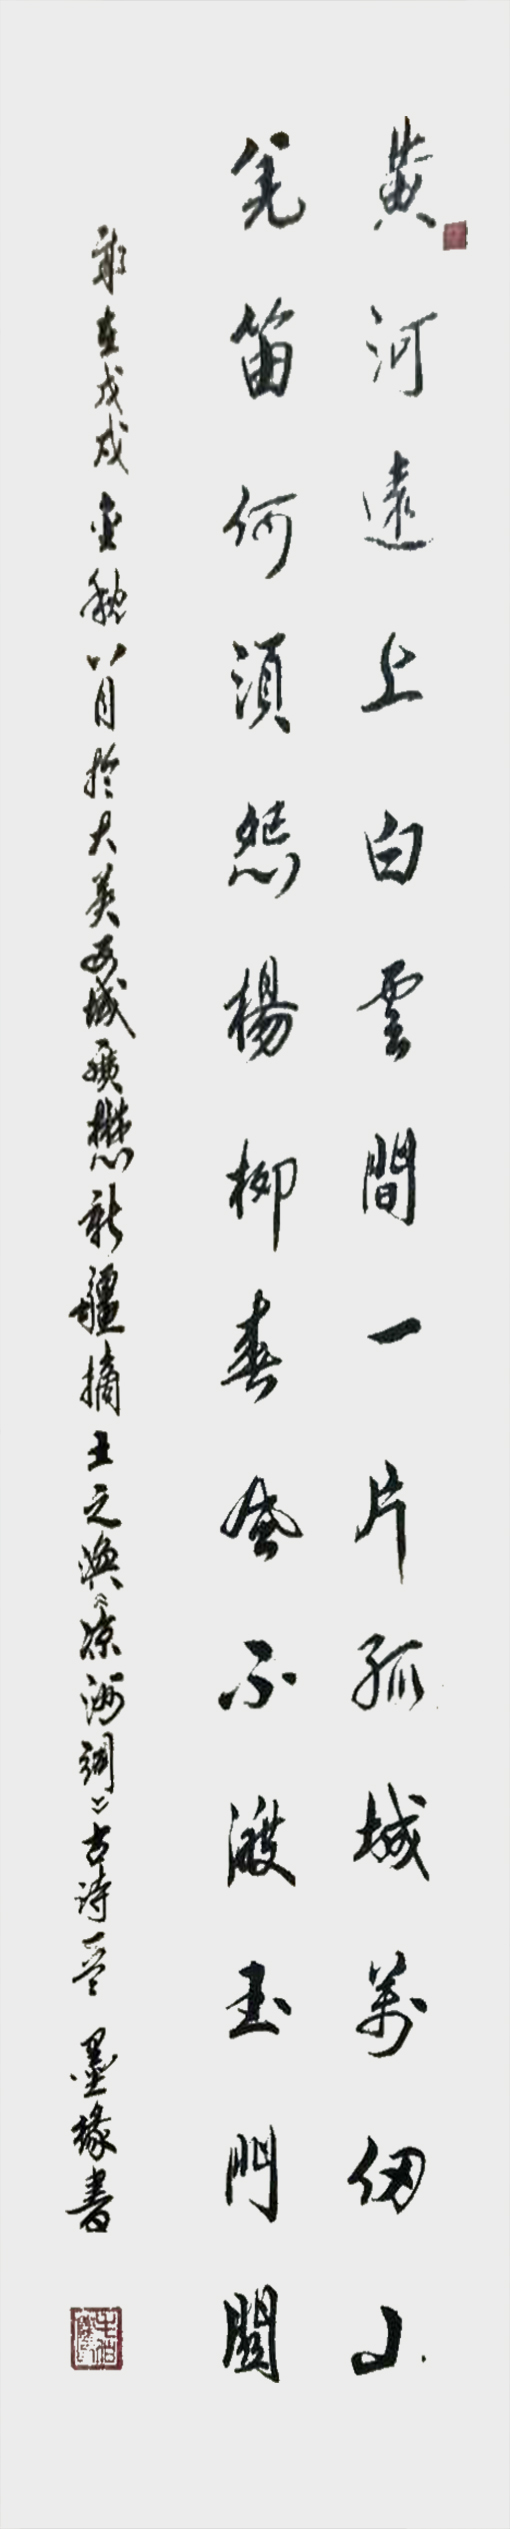 黄河遠上白雲間一片孤城萬仞山
羌笛何須怨楊柳春風不渡玉門關
歲在戊戌金秋八月於大美西域新疆摘王之渙《凉洲詞》古詩一首 墨緣書